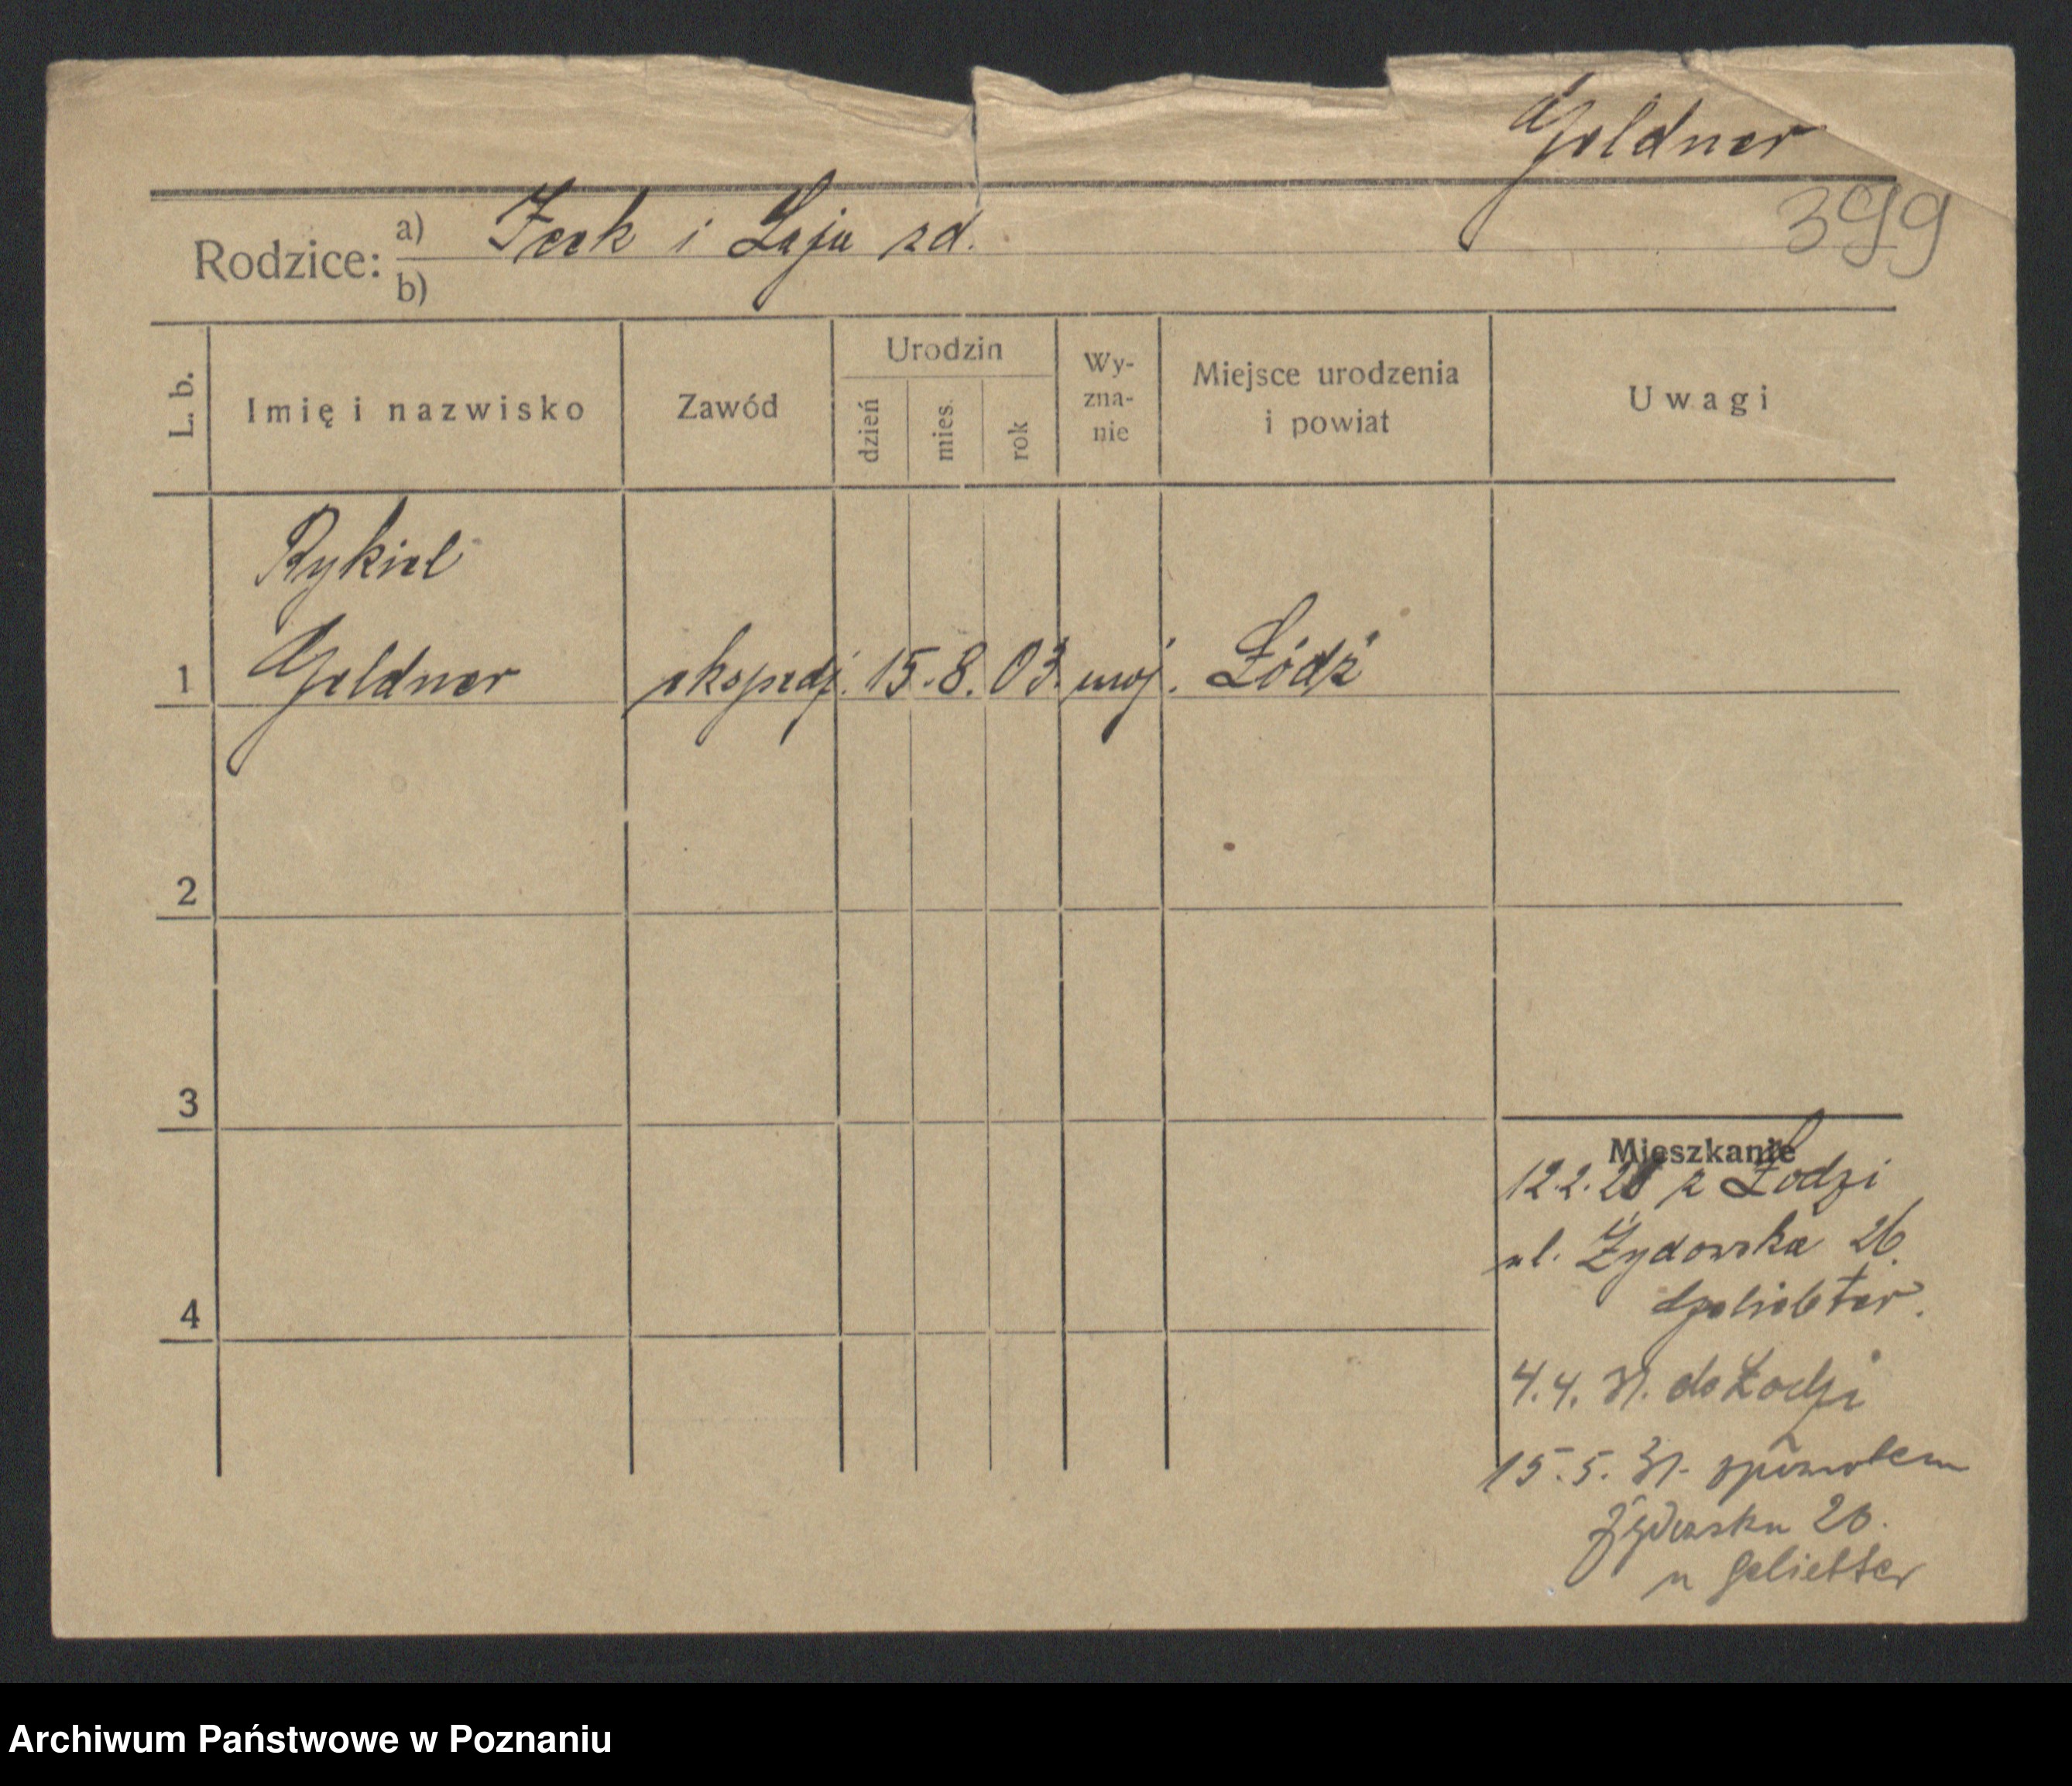 Goldner
399
Rodzice: a) Icek i Laja zd.
b)
L. b. Imię i nazwisko Zawód Urodzin dzień mies. rok Wy-zna-nie Miejsce urodzenia i powiat Uwagi
Rykiel
1 Goldner ekspedj. 15. 8. 03. moj. Łódź
2
3
4
Mieszkanie
12.2.28 z Łodzi
ul. Żydowska 26
4.4.31. do Łodzi
15.5.31. spowrotem
Żydowska 26.
u Geliebter
Archiwum Państwowe w Poznaniu